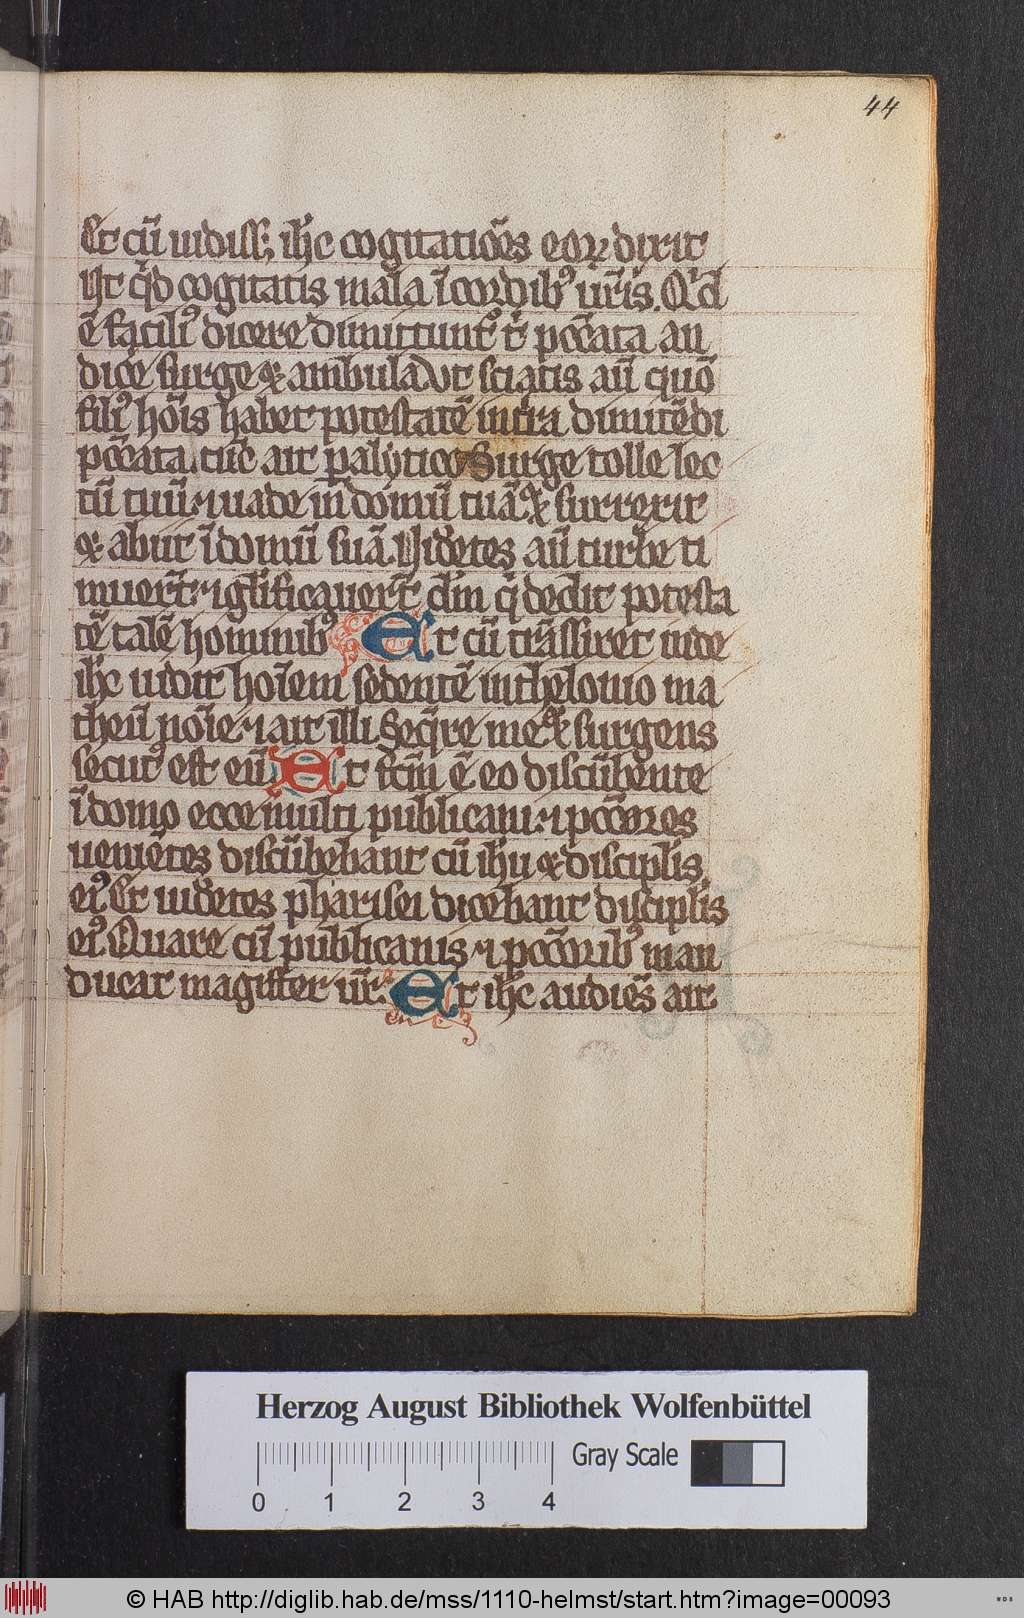 44
Et cū uidiss; ih̄c cogitatiōēs eoꝝ dixit
Ut q̇d cogitatis mala ī cordib᷒ ur̄is. Q'd
ē facili᷒ dicere dimittunt᷒ t' pccata an
dicē surge ⁊ ambula Ut sciatis aū quō
fili᷒ hōis habet potestatē in tr̄a dimitēdi
pccata. tūc ait palytico Surge tolle lec
tū tuū. ⁊ uade in domū tuā. Et surrexit
⁊ abiit ī domū suā. Vidētes aū turbe ti
muert̄. ⁊ glificauert̄ dm̄ q̇ dedit potesta
tē talē hominib᷒ Et cū trāssiret inde
ih̄c uidit hoīem sedentē in theloneo ma
theū noīe. ⁊ ait illi. Seqre me. Et surgens
secut᷒ est eū Et fcm̄ ē eo discūbente
ī domo ecce multi publicani. ⁊ pccōres
ueniētes discūbebant cū ih̄u ⁊ disciplis
ei᷒ Et uidētes pharisei dicebant disciplis
ei᷒ Quare cū publicanis ⁊ pccōrib᷒ man
ducat magister ur̄. Et ih̄c audiēs ait.
Herzog August Bibliothek Wolfenbüttel
Gray Scale
0 1 2 3 4
© HAB http://diglib.hab.de/mss/1110-helmst/start.htm?image=00093